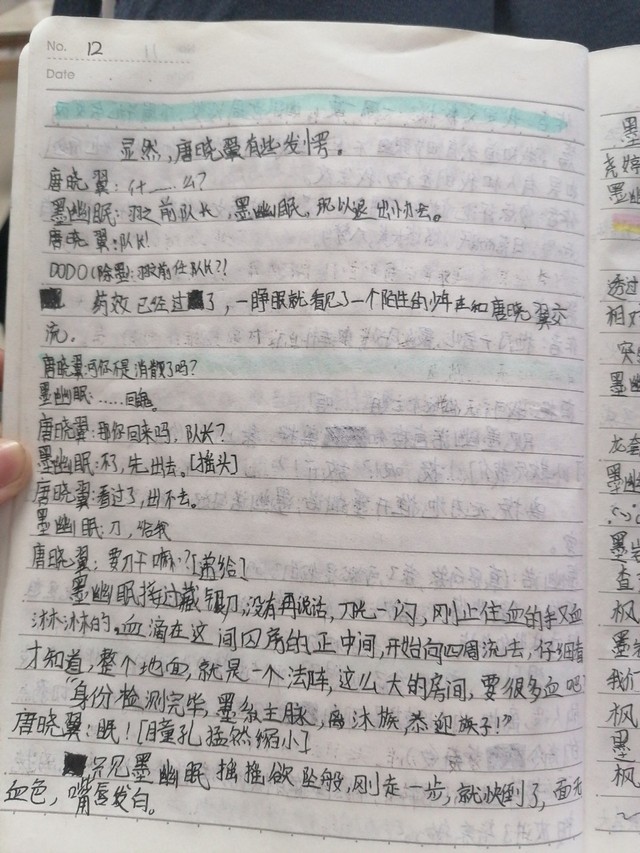 No. 12 11
Date
显然,唐晓翼有些发愣。
唐晓翼:什……么?
墨幽眠:前队长,墨幽眠,现以退出小办法。
唐晓翼:队长!
DODO(除墨):前任队长?!
药效已经过了,一睁眼就看见了一个陌生的少年在和唐晓翼交
流。
唐晓翼:可你不是消散了吗?
墨幽眠:……回魂。
唐晓翼:那你回来吗,队长?
墨幽眠:不了,先出去。[摇头]
唐晓翼:看过了,出不去。
墨幽眠:刀,给我
唐晓翼:要刀干嘛?[递给]
墨幽眠接过藏银刀,没有再说话,刀光一闪,刚止住血的手又血
淋淋的。血滴在这间囚房的正中间,开始向四周流去,仔细看
才知道,整个地面,就是一个法阵,这么大的房间,要很多血吧
"身份检测完毕,墨多主脉,沐族,恭迎族子!"
唐晓翼:眠![瞳孔猛然缩小]
只见墨幽眠摇摇欲坠般,刚走一步,就快倒了,面无
血色,嘴唇发白。
墨
尧婷
墨幽
透过
相对
突然
墨幽
龙套
墨幽
墨
查,
枫
墨
我们
枫
墨
枫